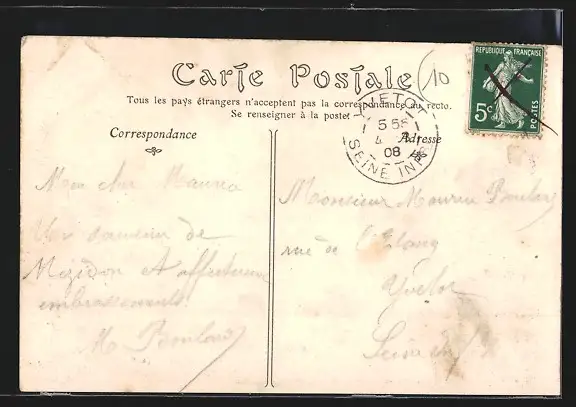 Carte Postale
(10
Tous les pays étrangers n'acceptent pas la correspondance au recto.
Se renseigner à la poste.
REPUBLIQUE FRANÇAISE
5c
POSTES
YVETOT
5 55
4
08
SEINE INFRE
Correspondance
Adresse
Mon cher Maurice
Un souvenir de
Mézidon et affectueux
embrassements
M
Monsieur Maurice
rue de l'Etang
Yvetot
Seine Inf